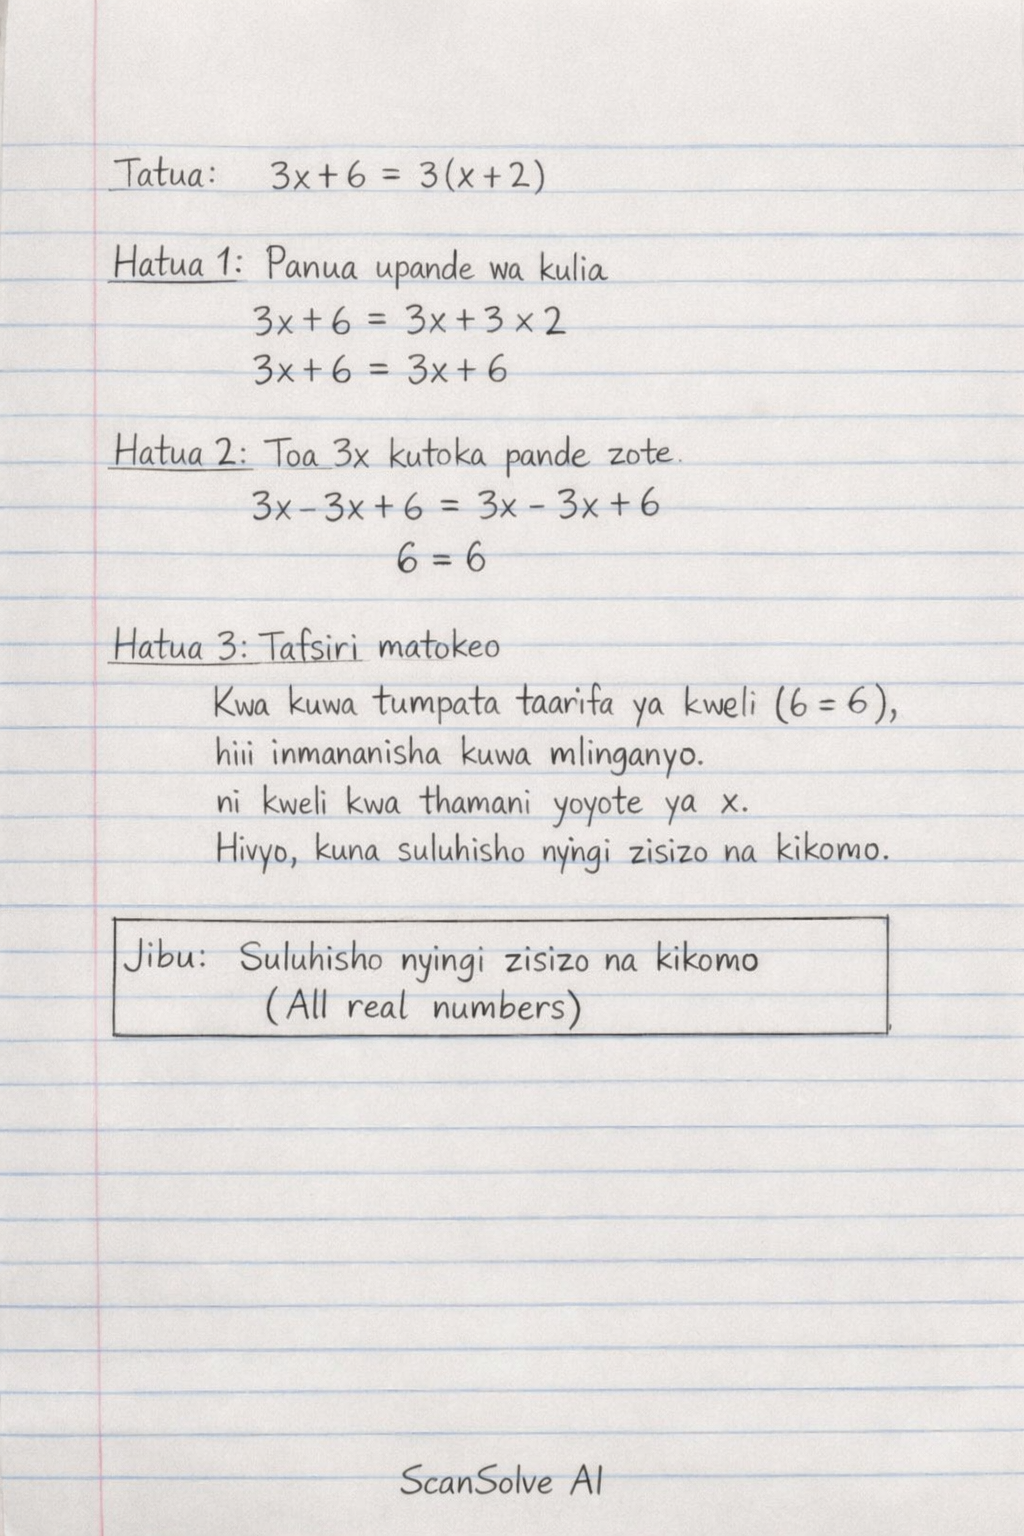 Tatua: 3x + 6 = 3(x + 2)
Hatua 1: Panua upande wa kulia
3x + 6 = 3x + 3 × 2
3x + 6 = 3x + 6
Hatua 2: Toa 3x kutoka pande zote.
3x - 3x + 6 = 3x - 3x + 6
6 = 6
Hatua 3: Tafsiri matokeo
Kwa kuwa tumpata taarifa ya kweli (6 = 6),
hiii inmananisha kuwa mlinganyo.
ni kweli kwa thamani yoyote ya x.
Hivyo, kuna suluhisho nyingi zisizo na kikomo.
Jibu: Suluhisho nyingi zisizo na kikomo
(All real numbers)
ScanSolve AI